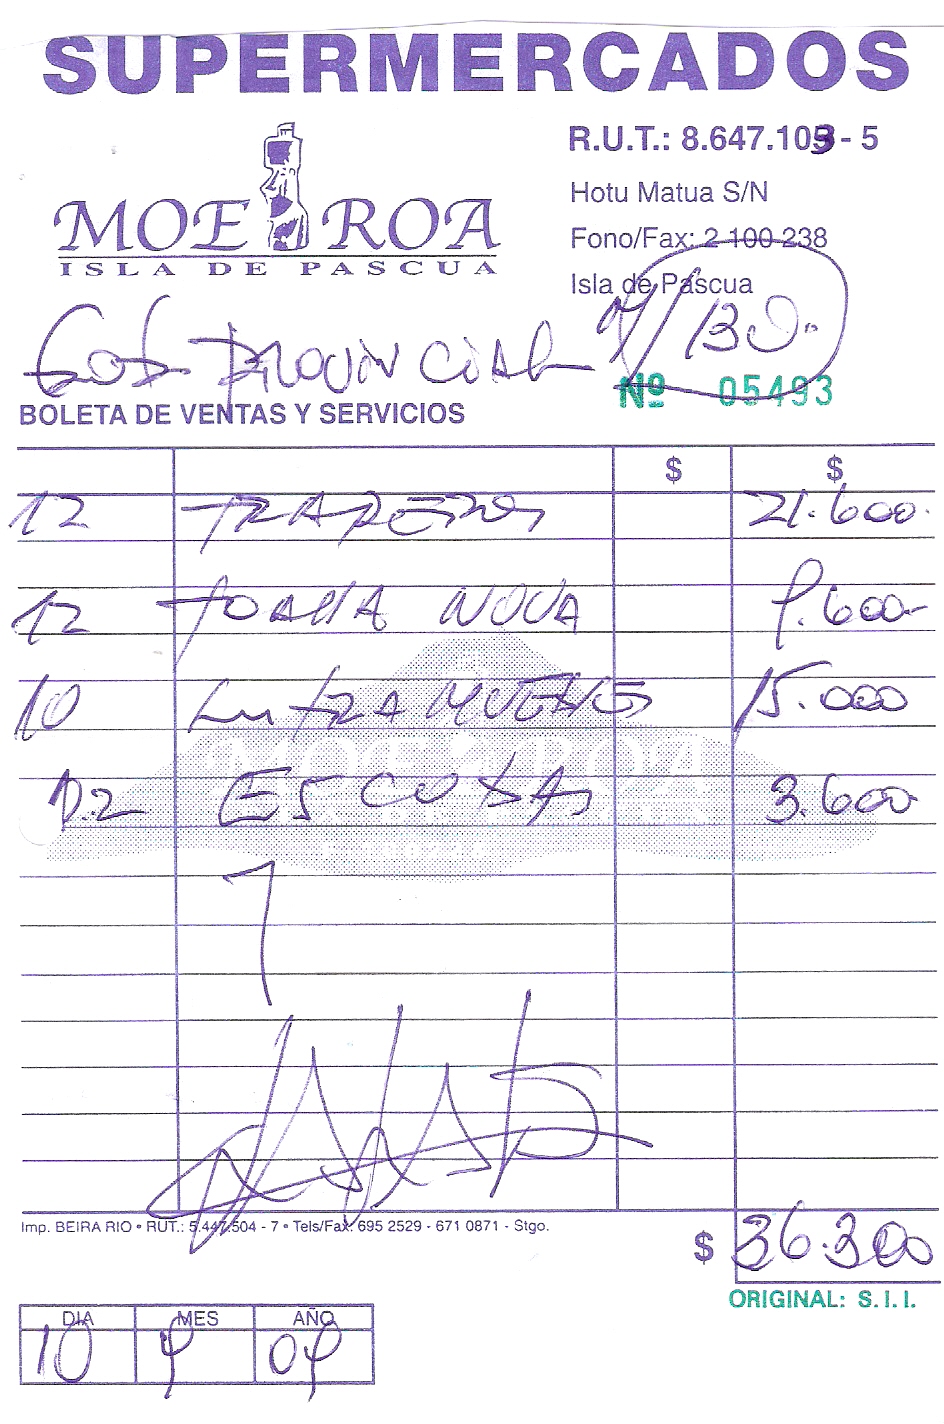 SUPERMERCADOS
MOE ROA
ISLA DE PASCUA
R.U.T.: 8.647.109-5
Hotu Matua S/N
Fono/Fax: 2 100 238
Isla de Pascua
Gob Provincial /130.-
Nº 05493
BOLETA DE VENTAS Y SERVICIOS
$ $
12 TRAPEROS 21.600.-
12 TOALLA NOVA 9.600-
10 LUSTRA MUEBLES 15.000
02 ESCOBAS 3.600-
MOE ROA
Imp. BEIRA RIO • RUT.: 5.447.504 - 7 • Tels/Fax: 695 2529 - 671 0871 - Stgo.
$ 36.300
ORIGINAL: S.I.I.
DIA MES AÑO
10 9 09